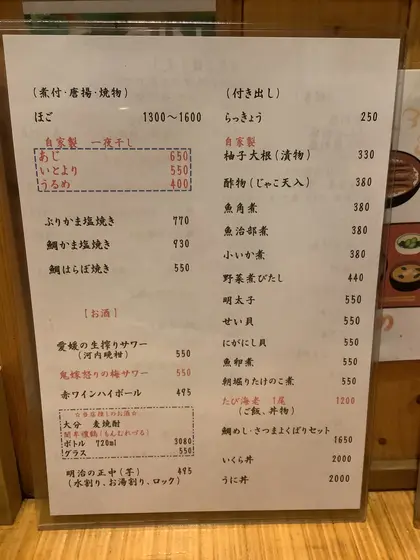 (煮付・唐揚・焼物)
ほご 1300〜1600
自家製 一夜干し
あじ 650
いとより 550
うるめ 400
ぶりかま塩焼き 770
鯛かま塩焼き 930
鯛はらぼ焼き 550
【お酒】
愛媛の生搾りサワー
(河内晩柑) 550
鬼嫁怒りの梅サワー 550
赤ワインハイボール 495
大分 麦焼酎
ボトル 720ml 3080
グラス 550
明治の正中(芋) 495
(水割り、お湯割り、ロック)
(付き出し)
らっきょう 250
自家製
柚子大根(漬物) 330
酢物(じゃこ天入) 380
魚角煮 380
魚治部煮 380
小いか煮 380
野菜煮びたし 440
明太子 550
せい貝 550
にがにし貝 550
魚卵煮 550
朝堀りたけのこ煮 550
たび海老 1尾 1200
(ご飯、丼物)
鯛めし・さつまよくばりセット
1650
いくら丼 2000
うに丼 2000